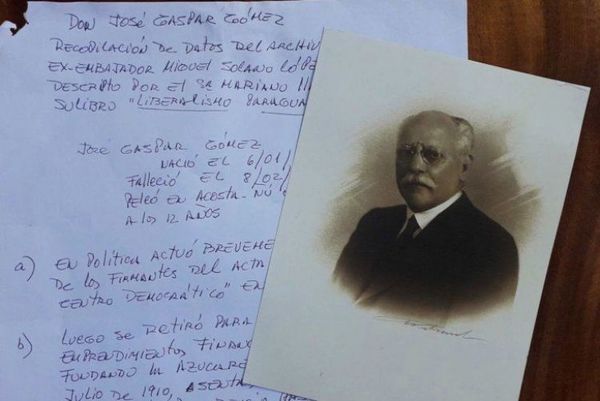 DON JOSÉ GASPAR GÓMEZ
RECOPILACIÓN DE DATOS DEL ARCHIV
EX-EMBAJADOR MIGUEL SOLANO LÓPE
DESCRIPTO POR EL SR MARIANO
SU LIBRO "LIBERALISMO PARAGUA
JOSE GASPAR GÓMEZ
NACIÓ EL 6/01/
FALLECIÓ EL 8/02/
PELEÓ EN ACOSTA-ÑÚ
A LOS 12 AÑOS
a) EN POLÍTICA ACTUÓ BREVEME
DE LOS FIRMANTES DEL ACTA
CENTRO DEMOCRÁTICO" EN
b) LUEGO SE RETIRÓ PARA
EMPRENDIMIENTOS FINANC
FUNDANDO LA AZUCARE
JULIO DE 1910, ASENTA